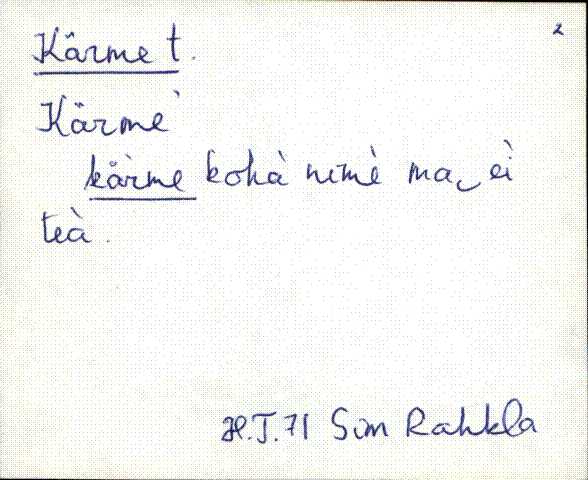 2
Kärme t.
Kärme`
kä̀rme kohà nimè ma‿ei
teà.
H.T.71 Sim Rahkla